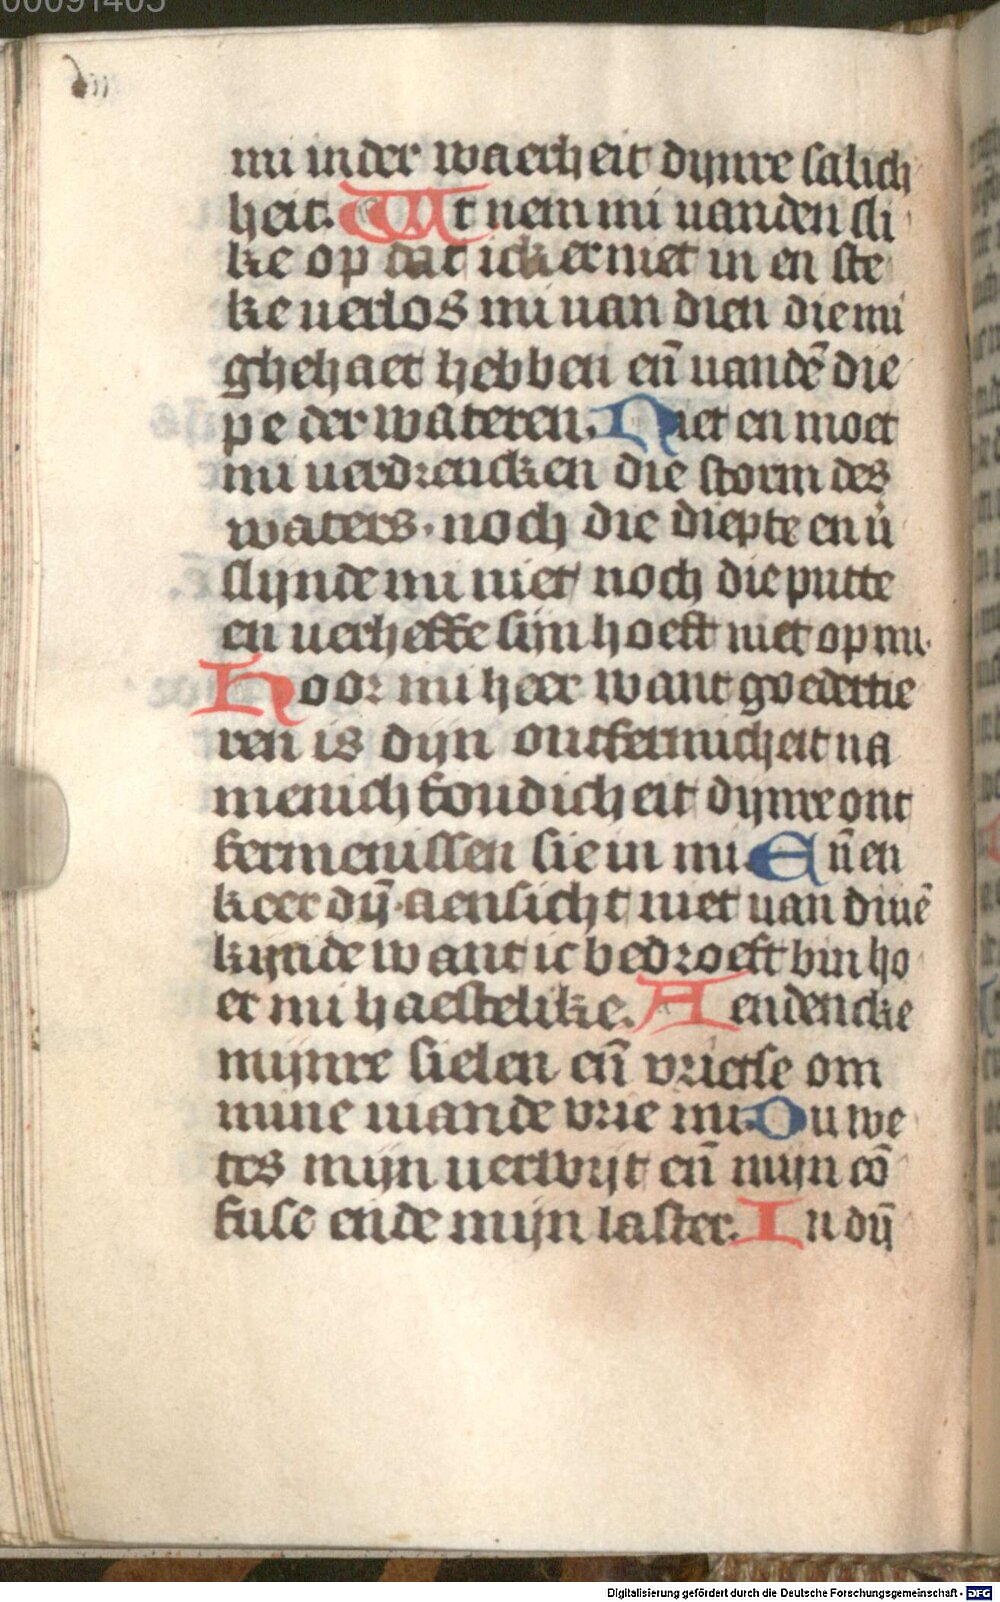 00091405
mi in der waerheit dijnre salich
heit. Wt nem mi uanden sli
ke op dat ick er niet in en ste
ke uerlos mi uan dien die mi
ghehaet hebben eñ uandē die
pe der wateren. Niet en moet
mi uerdrencken die storm des
waters. noch die diepte en ú
slijnde mi niet noch die putte
en uerheffe sijn hoeft niet op mi.
Hoor mi heer want goedertie
ren is dijn ontfermicheit na
menichfoudicheit dijnre ont
fermenissen sie in mi. Eñ en
keer dij̄ aensicht niet uan dinē
kijnde want ic bedroeft bin ho
er mi haestelike. Aendencke
mijnre sielen eñ vrietse om
mine uiande vrie mi. Du we
tes mijn uerwijt eñ mijn cō
fuse ende mijn laster. In dij̄
Digitalisierung gefördert durch die Deutsche Forschungsgemeinschaft - DFG